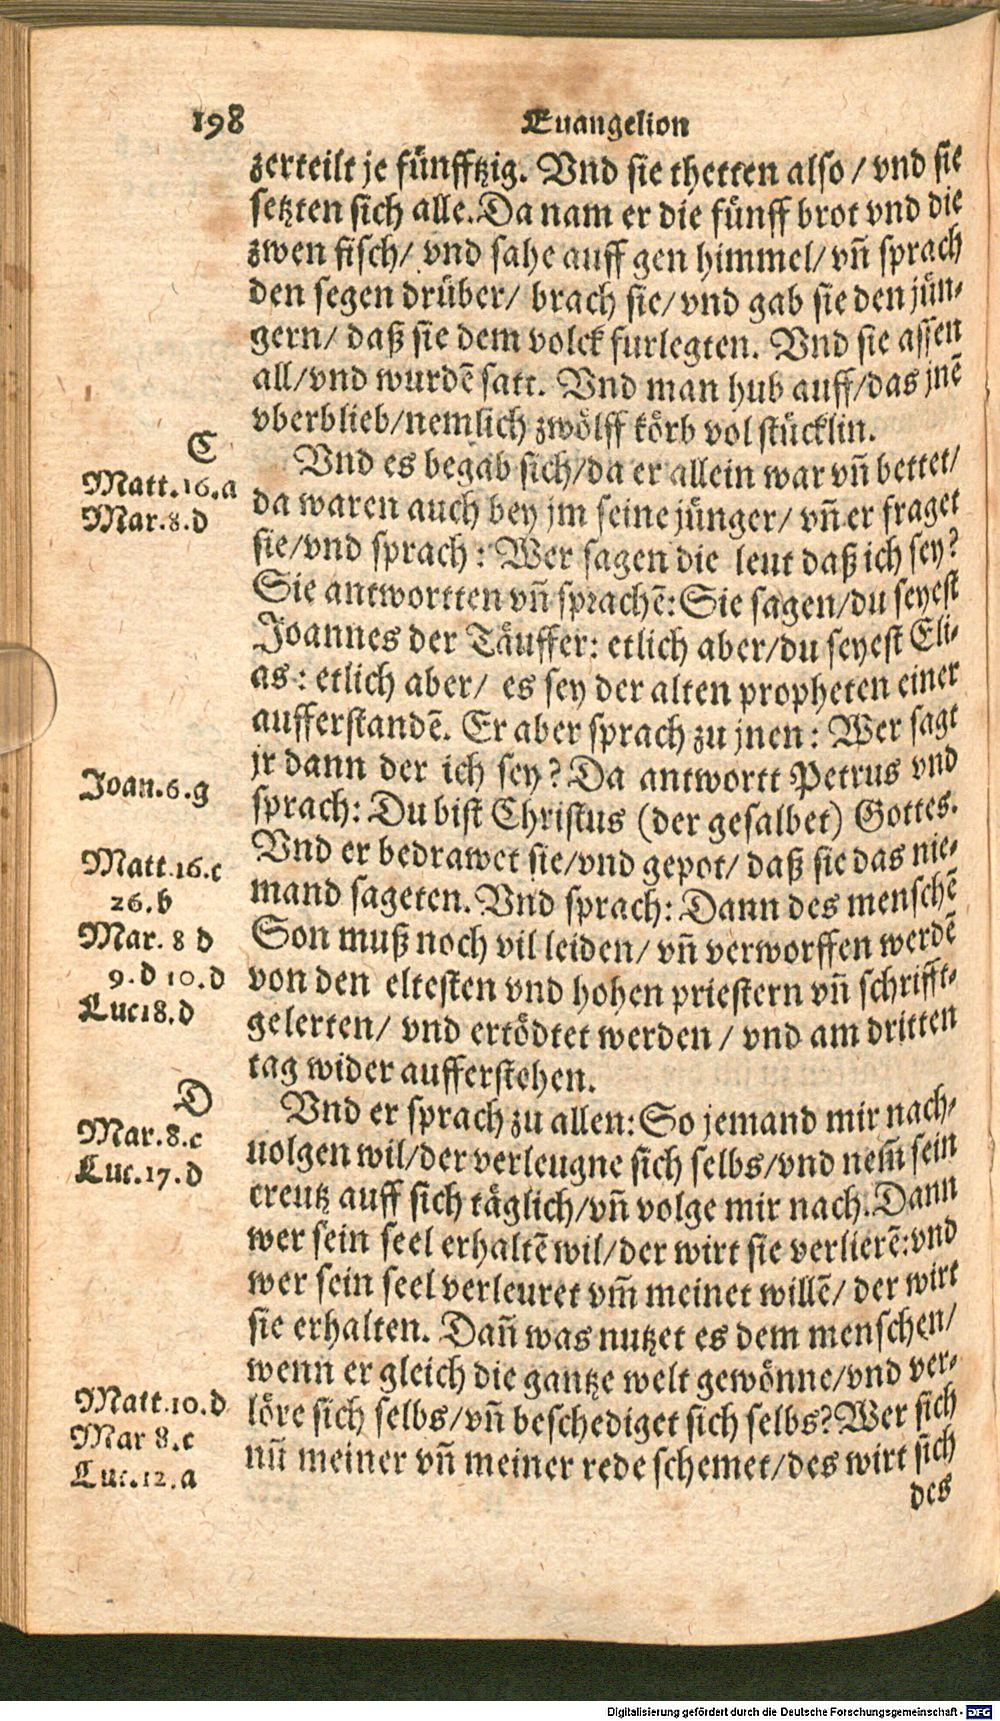 198 Euangelion
zerteilt je fünfftzig. Vnd sie thetten also / vnd sie
setzten sich alle. Da nam er die fünff brot vnd die
zwen fisch/ vnd sahe auff gen himmel/ vñ sprach
den segen drüber/ brach sie/ vnd gab sie den jün-
gern/ daß sie dem volck furlegten. Vnd sie assen
all/ vnd wurdẽ satt. Vnd man hub auff/das jnẽ
vberblieb/nemlich zwölff körb vol stücklin.
C
Vnd es begab sich/da er allein war vñ bettet/
Matt.16.a
da waren auch bey jm seine jünger/ vñ er fraget
Mar.8.d
sie/vnd sprach: Wer sagen die leut daß ich sey?
Sie antwortten vñ sprachẽ: Sie sagen/du seyest
Joannes der Täuffer: etlich aber/du seyest Eli-
as: etlich aber/ es sey der alten propheten einer
aufferstandẽ. Er aber sprach zu jnen: Wer sagt
jr dann der ich sey? Da antwortt Petrus vnd
Joan.6.g
sprach: Du bist Christus (der gesalbet) Gottes.
Vnd er bedrawet sie/vnd gepot/ daß sie das nie-
Matt.16.c
mand sageten. Vnd sprach: Dann des menschẽ
26.b
Son muß noch vil leiden/ vñ verworffen werdẽ
Mar. 8 d
von den eltesten vnd hohen priestern vñ schrifft-
9.d 10.d
gelerten/ vnd ertödtet werden / vnd am dritten
Luc18.d
tag wider aufferstehen.
D
Vnd er sprach zu allen: So jemand mir nach-
Mar.8.c
uolgen wil/der verleugne sich selbs/vnd nem̃ sein
Luc.17.d
creutz auff sich täglich/vñ volge mir nach. Dann
wer sein seel erhaltẽ wil/der wirt sie verlierẽ: vnd
wer sein seel verleuret vm̃ meinet willẽ/ der wirt
sie erhalten. Dañ was nutzet es dem menschen/
wenn er gleich die gantze welt gewönne/vnd ver-
Matt.10.d
löre sich selbs/vñ beschediget sich selbs? Wer sich
Mar 8.c
nũ meiner vñ meiner rede schemet/des wirt sich
Luc.12.a
des
Digitalisierung gefördert durch die Deutsche Forschungsgemeinschaft - DFG